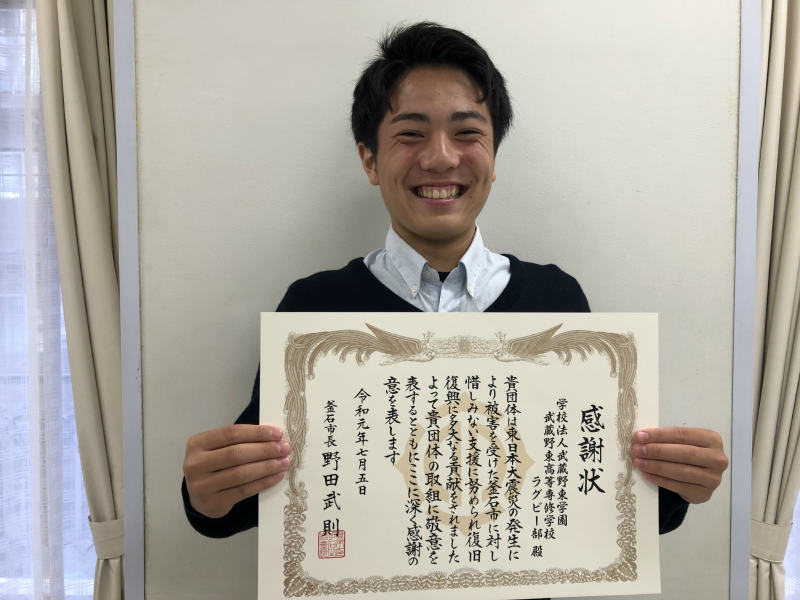 感謝状
学校法人武蔵野東学園
武蔵野東高等専修学校
ラグビー部 殿
貴団体は東日本大震災の発生に
より被害を受けた釜石市に対し
惜しみない支援に努められ復旧
復興に多大なる貢献をされました
よって貴団体の取組に敬意を
表するとともにここに深く感謝の
意を表します
令和元年七月五日
釜石市長 野田武則